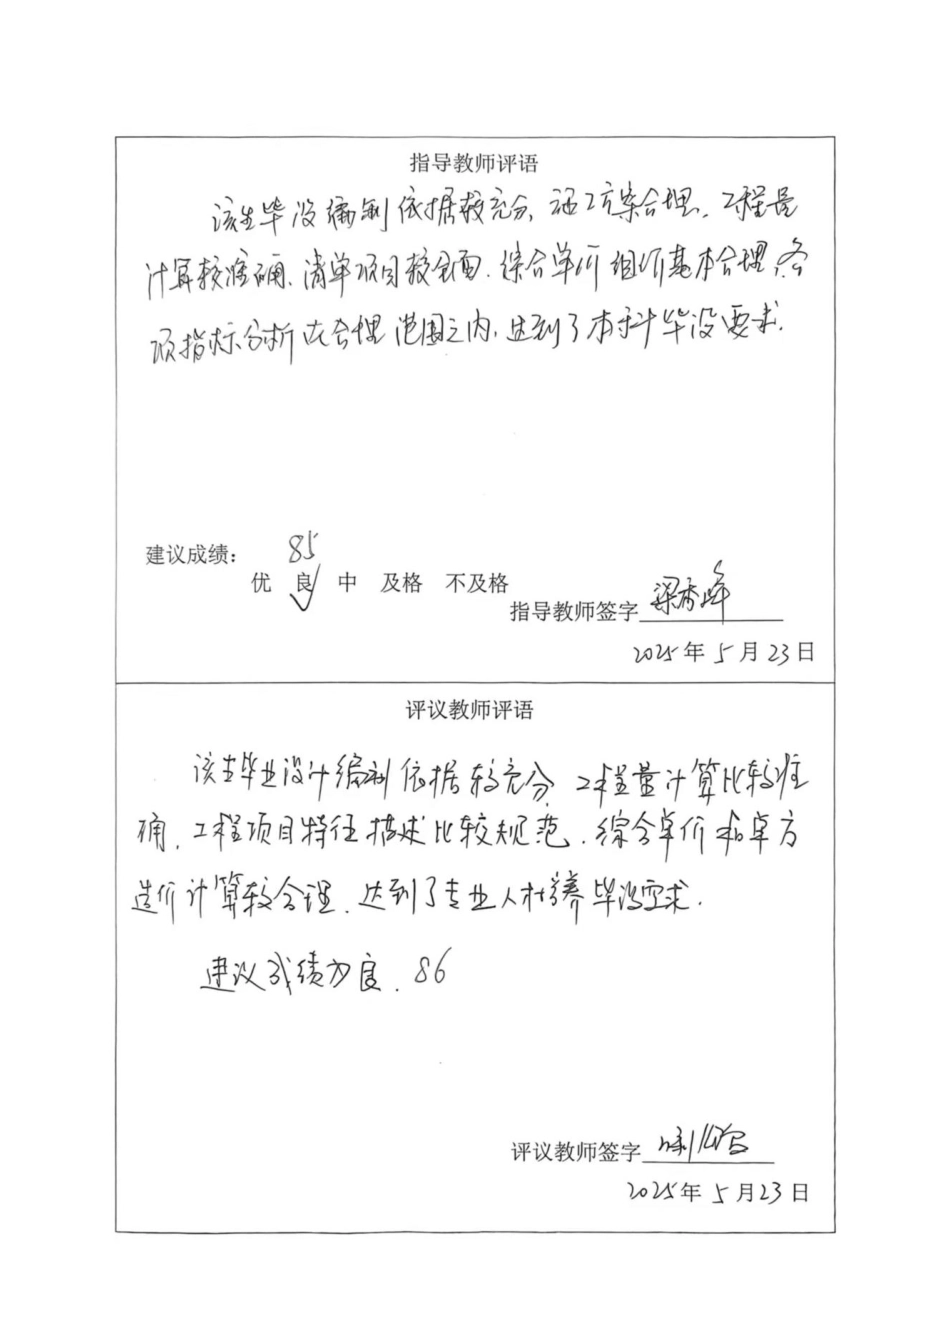 指导教师评语
该生毕设编制依据较充分，施工方案合理，工程量
计算较准确、清单项目较全面．综合单价组价基本合理，各
项指标分析在合理范围之内，达到了本科毕设要求．
建议成绩： 85
优 良 中 及格 不及格
指导教师签字 梁秀峰
2025年5月23日
评议教师评语
该生毕业设计编制依据较充分，工程量计算比较准
确，工程项目特征描述比较规范．综合单价和单方
造价计算较合理．达到了专业人才培养毕设要求．
建议成绩为良．86
评议教师签字
2025年5月23日